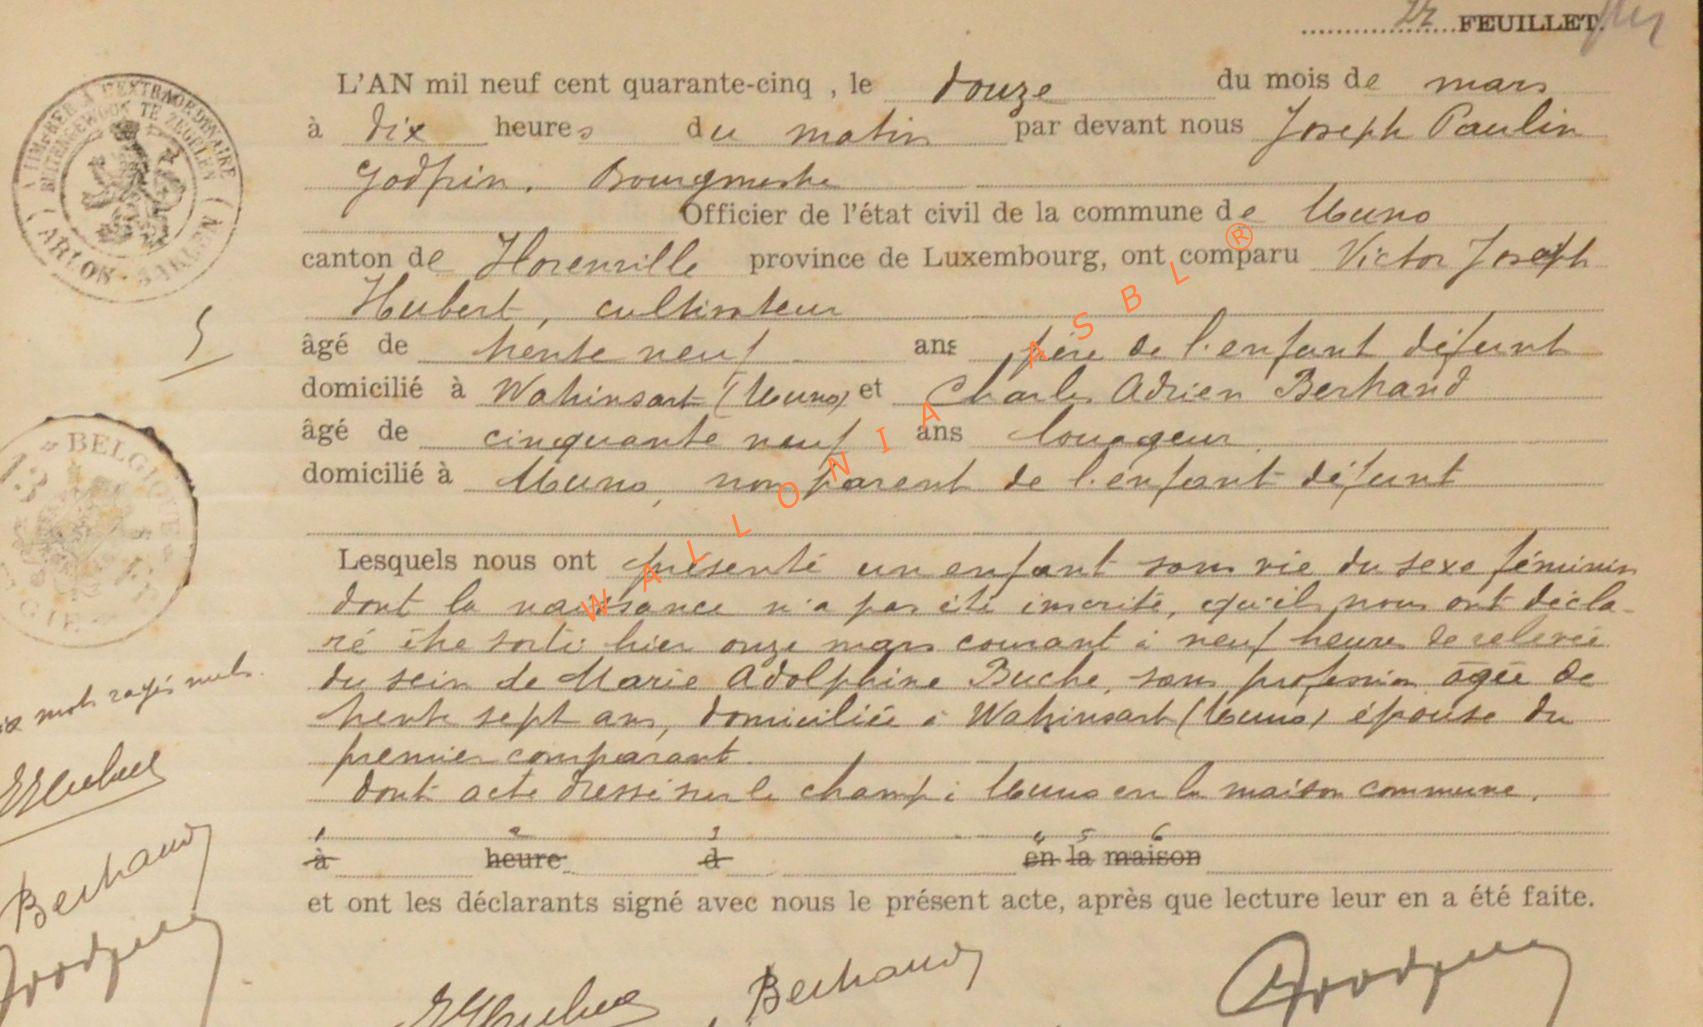 22 FEUILLET.
L'AN mil neuf cent quarante-cinq , le douze du mois de mars
à dix heures du matin par devant nous Joseph Paulin
Godfrin, Bourgmestre
Officier de l'état civil de la commune de Muno
canton de Florenville province de Luxembourg, ont comparu Victor Joseph
Hubert, cultivateur
âgé de trente neuf ans père de l'enfant défunt
domicilié à Watrinsart (Muno) et Charles Adrien Bertrand
âgé de cinquante neuf ans louageur
domicilié à Muno, non parent de l'enfant défunt
Lesquels nous ont présenté un enfant sans vie du sexe féminin
dont la naissance n'a pas été inscrite, qu'ils nous ont décla-
ré être sorti hier onze mars courant à neuf heures de relevée
du sein de Marie Adolphine Buche, sans profession âgée de
trente sept ans, domiciliée à Watrinsart (Muno) épouse du
premier comparant.
dont acte dressé sur le champ à Muno en la maison commune.
1 2 3 4 5 6
à heure d en la maison
et ont les déclarants signé avec nous le présent acte, après que lecture leur en a été faite.
Hubert Bertrand Godfrin
TIMBRER A L'EXTRAORDINAIRE
BUITENGEWOON TE ZEGELEN
ARLON - AARLEN
5
BELGIQUE
BELGIË
six mots rayés nuls.
Hubert
Bertrand
Godfrin
WALLONIA ASBL ®